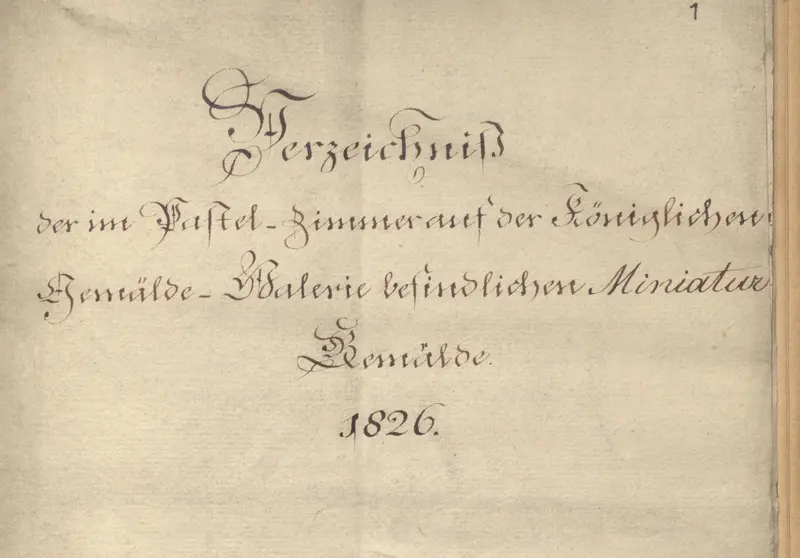 1
Verzeichniß
der im Pastel-Zimmer auf der Königlichen
Gemälde-Galerie befindlichen Miniatur
Gemälde.
1826.